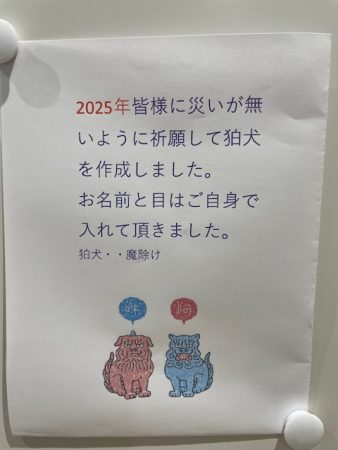 2025年皆様に災いが無
いように祈願して狛犬
を作成しました。
お名前と目はご自身で
入れて頂きました。
狛犬・・魔除け
吽 阿